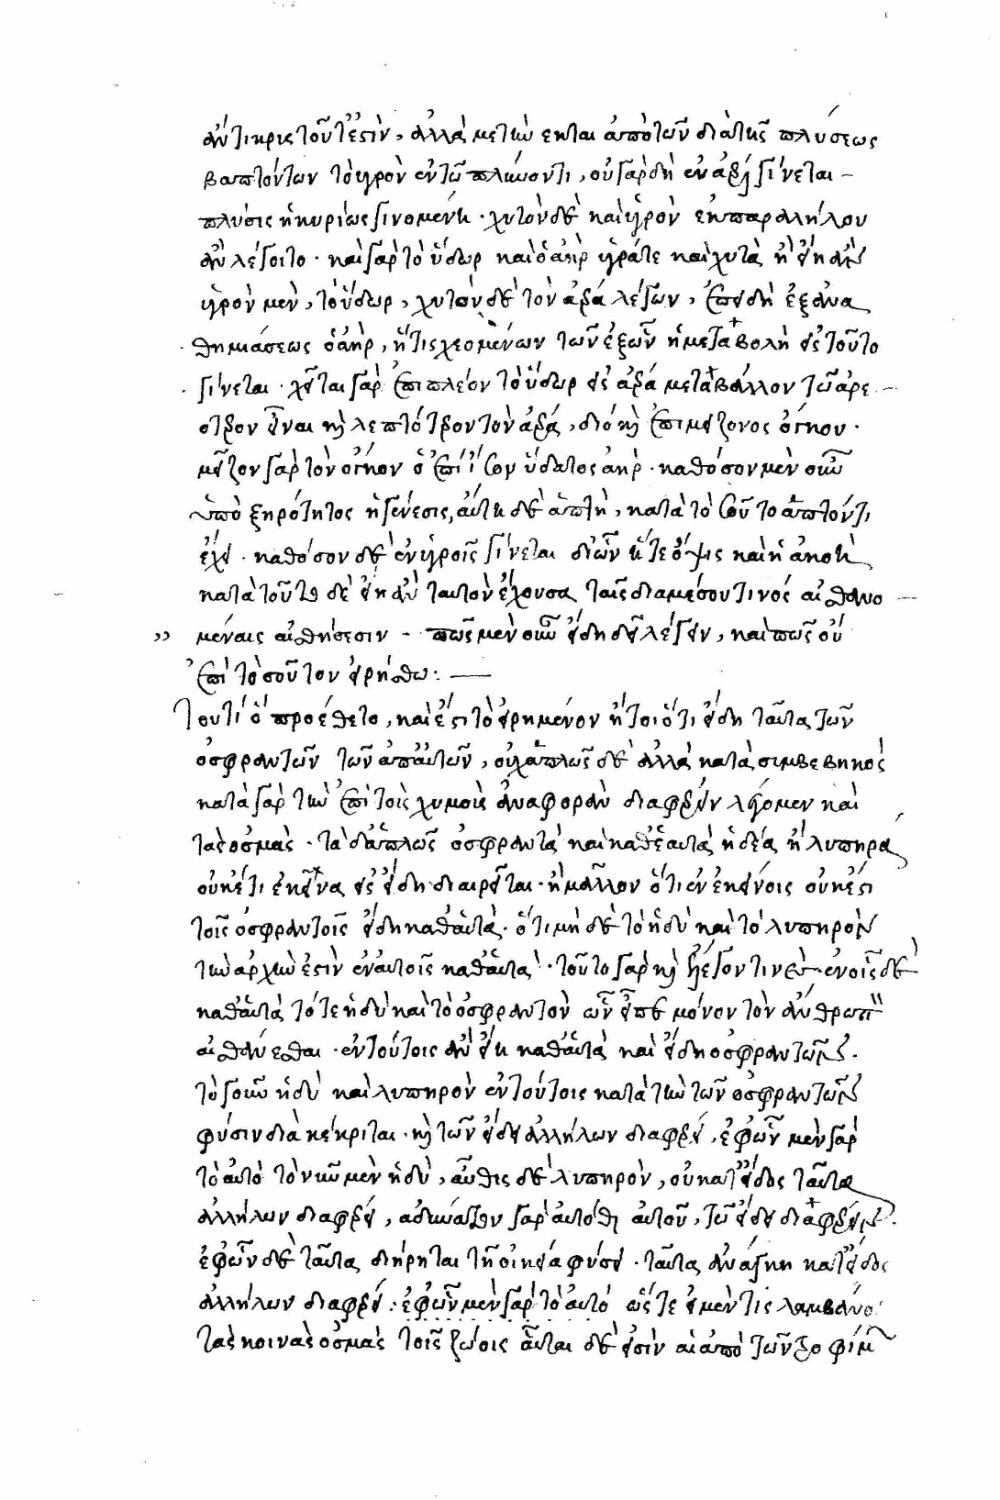 ἄντικρις τοῦτ' ἐστὶν, ἀλλὰ μετ ἀπὸ τῶν διὰ τῆς πλύσεως
βαπτόντων τὸ ὑγρὸν ἐν τῶ πλύνοντι, οὐ γὰρ δὴ ἐν ἀέρι γίνεται
πλύσις ἡ κυρίως γινομένη · χυτὸν δὲ καὶ ὑγρὸν ἐκ παραλλήλου
ἂν λέγοιτο · καὶ γὰρ τὸ ὕδωρ καὶ ὁ ἀὴρ ὑγρά τε καὶ χυτὰ ἢ εἴη ἂν
ὑγρὸν μὲν, τὸ ὕδωρ, χυτὸν δὲ τὸν ἀέρα λέγων, ἐπειδὴ ἐξ ἀνα
θημιάσεως ὁ ἀὴρ, ἥτις χεομένων τῶν ἐξ ὧν ἡ μεταβολὴ εἰς τοῦτο
γίνεται · χεῖται γὰρ ἐπιπλέον τὸ ὕδωρ εἰς ἀέρα μεταβάλλον τῶ ἀρε
ότερον εἶναι καὶ λεπτότερον τὸν ἀέρα, διό καὶ ἐπὶ μείζονος ὄγκου ·
μείζον γὰρ τὸν ὄγκον ὁ ἐπὶ ἴσου ὕδατος ἀὴρ · καθόσον μὲν οὖν
ὑπὸ ξηρότητος ἡ γένεσις, αὕτη δὲ ἁπτὴ, κατὰ τὸ τοῦτο ἅπτοντι
ἔχει · καθόσον δὲ ἐν ὑγροῖς γίνεται δι' ὧν ἥ τε ὄψις καὶ ἡ ἀκοὴ
κατὰ τοῦτο δὲ εἴη ἂν ταυτὸν ἔχουσα ταῖς διαμέσου τινός αἰσθανο
μέναις αἰσθήσεσιν - πῶς μὲν οὖν εἴδη δεῖ λέγειν, καὶ πῶς οὐ
ἐπὶ τοσοῦτον εἰρήσθω:
Τουτὶ ὃ προέθετο, καὶ ἔστι τὸ εἰρημένον ἤτοι ὅτι εἴδη ταῦτα τῶν
ὀσφραντῶν τῶν ἀπ' αὐτῶν, οὐχ ἁπλῶς δὲ ἀλλὰ κατὰ συμβεβηκὸς
κατὰ γὰρ τὴν ἐπὶ τοῖς χυμοῖς ἀναφορὰν διαφέρειν λέγομεν καὶ
τὰς ὀσμὰς · τὰ δ' ἁπλῶς ὀσφραντὰ καὶ καθ' ἑαυτὰ ἡδέα ἢ λυπηρά
οὐκέτι ἐκεῖνα εἰς εἴδη διαιρεῖται · ἢ μᾶλλον ὅτι ἐν ἐκείνοις οὐκ ἔστι
τοῖς ὀσφραντοῖς εἴδη καθ' αὑτὰ · ὅτι μὴ δὲ τὸ ἡδὺ καὶ τὸ λυπηρὸν
τὴν ἀρχὴν ἐστὶν ἐν αὐτοῖς καθ' αὑτὰ · τοῦτο γὰρ καὶ ἐν οἷς δὲ
καθ' αὑτὰ τό τε ἡδὺ καὶ τὸ ὀσφραντὸν ὧν εἶπε μόνον τὸν ἄνθρωπον
αἰσθάνεσθαι · ἐν τούτοις ἂν εἴη καθ' αὑτὰ καὶ εἴδη ὀσφραντῶν ·
τὸ γοῦν ἡδὺ καὶ λυπηρὸν ἐν τούτοις κατὰ τὴν τῶν ὀσφραντῶν
φύσιν διακέκριται · καὶ τῶν εἴδει ἀλλήλων διαφέρει, ἐφ' ὧν μὲν γὰρ
τὸ αὐτὸ τὸ νῦν μὲν ἡδὺ, αὖθις δὲ λυπηρὸν, οὐ κατ' εἶδος ταῦτα
ἀλλήλων διαφέρει, ἀδύνατον γὰρ αὐτὸ αὐτοῦ, τῶ εἴδει διαφέρειν.
ἐφ' ὧν δὲ ταῦτα διήρηται τῆ οἰκεία φύσει · ταῦτα ἀνάγκη κατ' εἶδος
ἀλλήλων διαφέρει · ἐφ' ὧν μὲν γὰρ τὸ αὐτό ὥστε εἰ μέν τις λαμβάνοι
τὰς κοινὰς ὀσμὰς τοῖς ζώοις αὗται δὲ εἰσὶν αἱ ἀπὸ τῶν τροφίμων